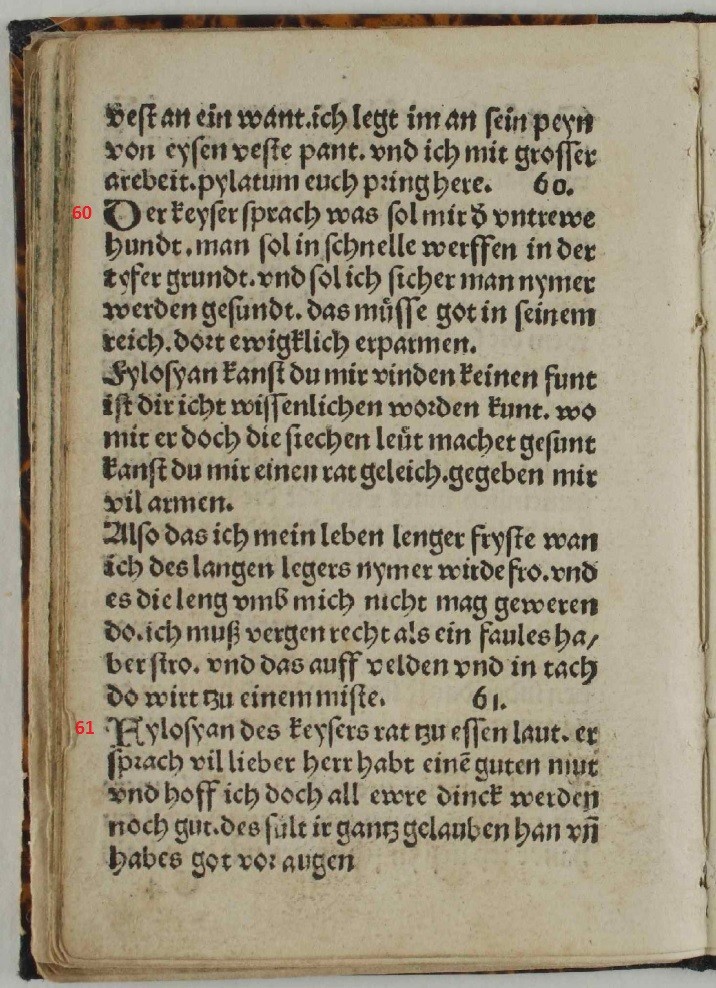 vest an ein want.ich legt im an sein peyn
von eysen veste pant. vnd ich mit grosser
arebeit.pylatum euch pring here. 60.
60 Der keyser sprach was sol mir d̕ vntrewe
hundt.man sol in schnelle werffen in der
tyfer grundt.vnd sol ich sicher man nymer
werden gesundt. das müsse got in seinem
reich.dort ewigklich erparmen.
Fylosyan kanst du mir vinden keinen funt
ist dir icht wissenlichen worden kunt. wo
mit er doch die siechen leüt machet gesunt
kanst du mir einen rat geleich.gegeben mir
vil armen.
Also das ich mein leben lenger fryste wan
ich des langen legers nymer wirde fro.vnd
es die leng vmb mich nicht mag geweren
do.ich muß vergen recht als ein faules ha/
ber stro. vnd das auff velden vnd in tach
do wirt tzu einem miste. 61.
61 Fylosyan des keysers rat tzu essen laut. er
sprach vil lieber herr habt einē guten mut
vnd hoff ich doch all ewre dinck werden
noch gut.des sült ir gantz gelauben han vn̄
habes got vor augen